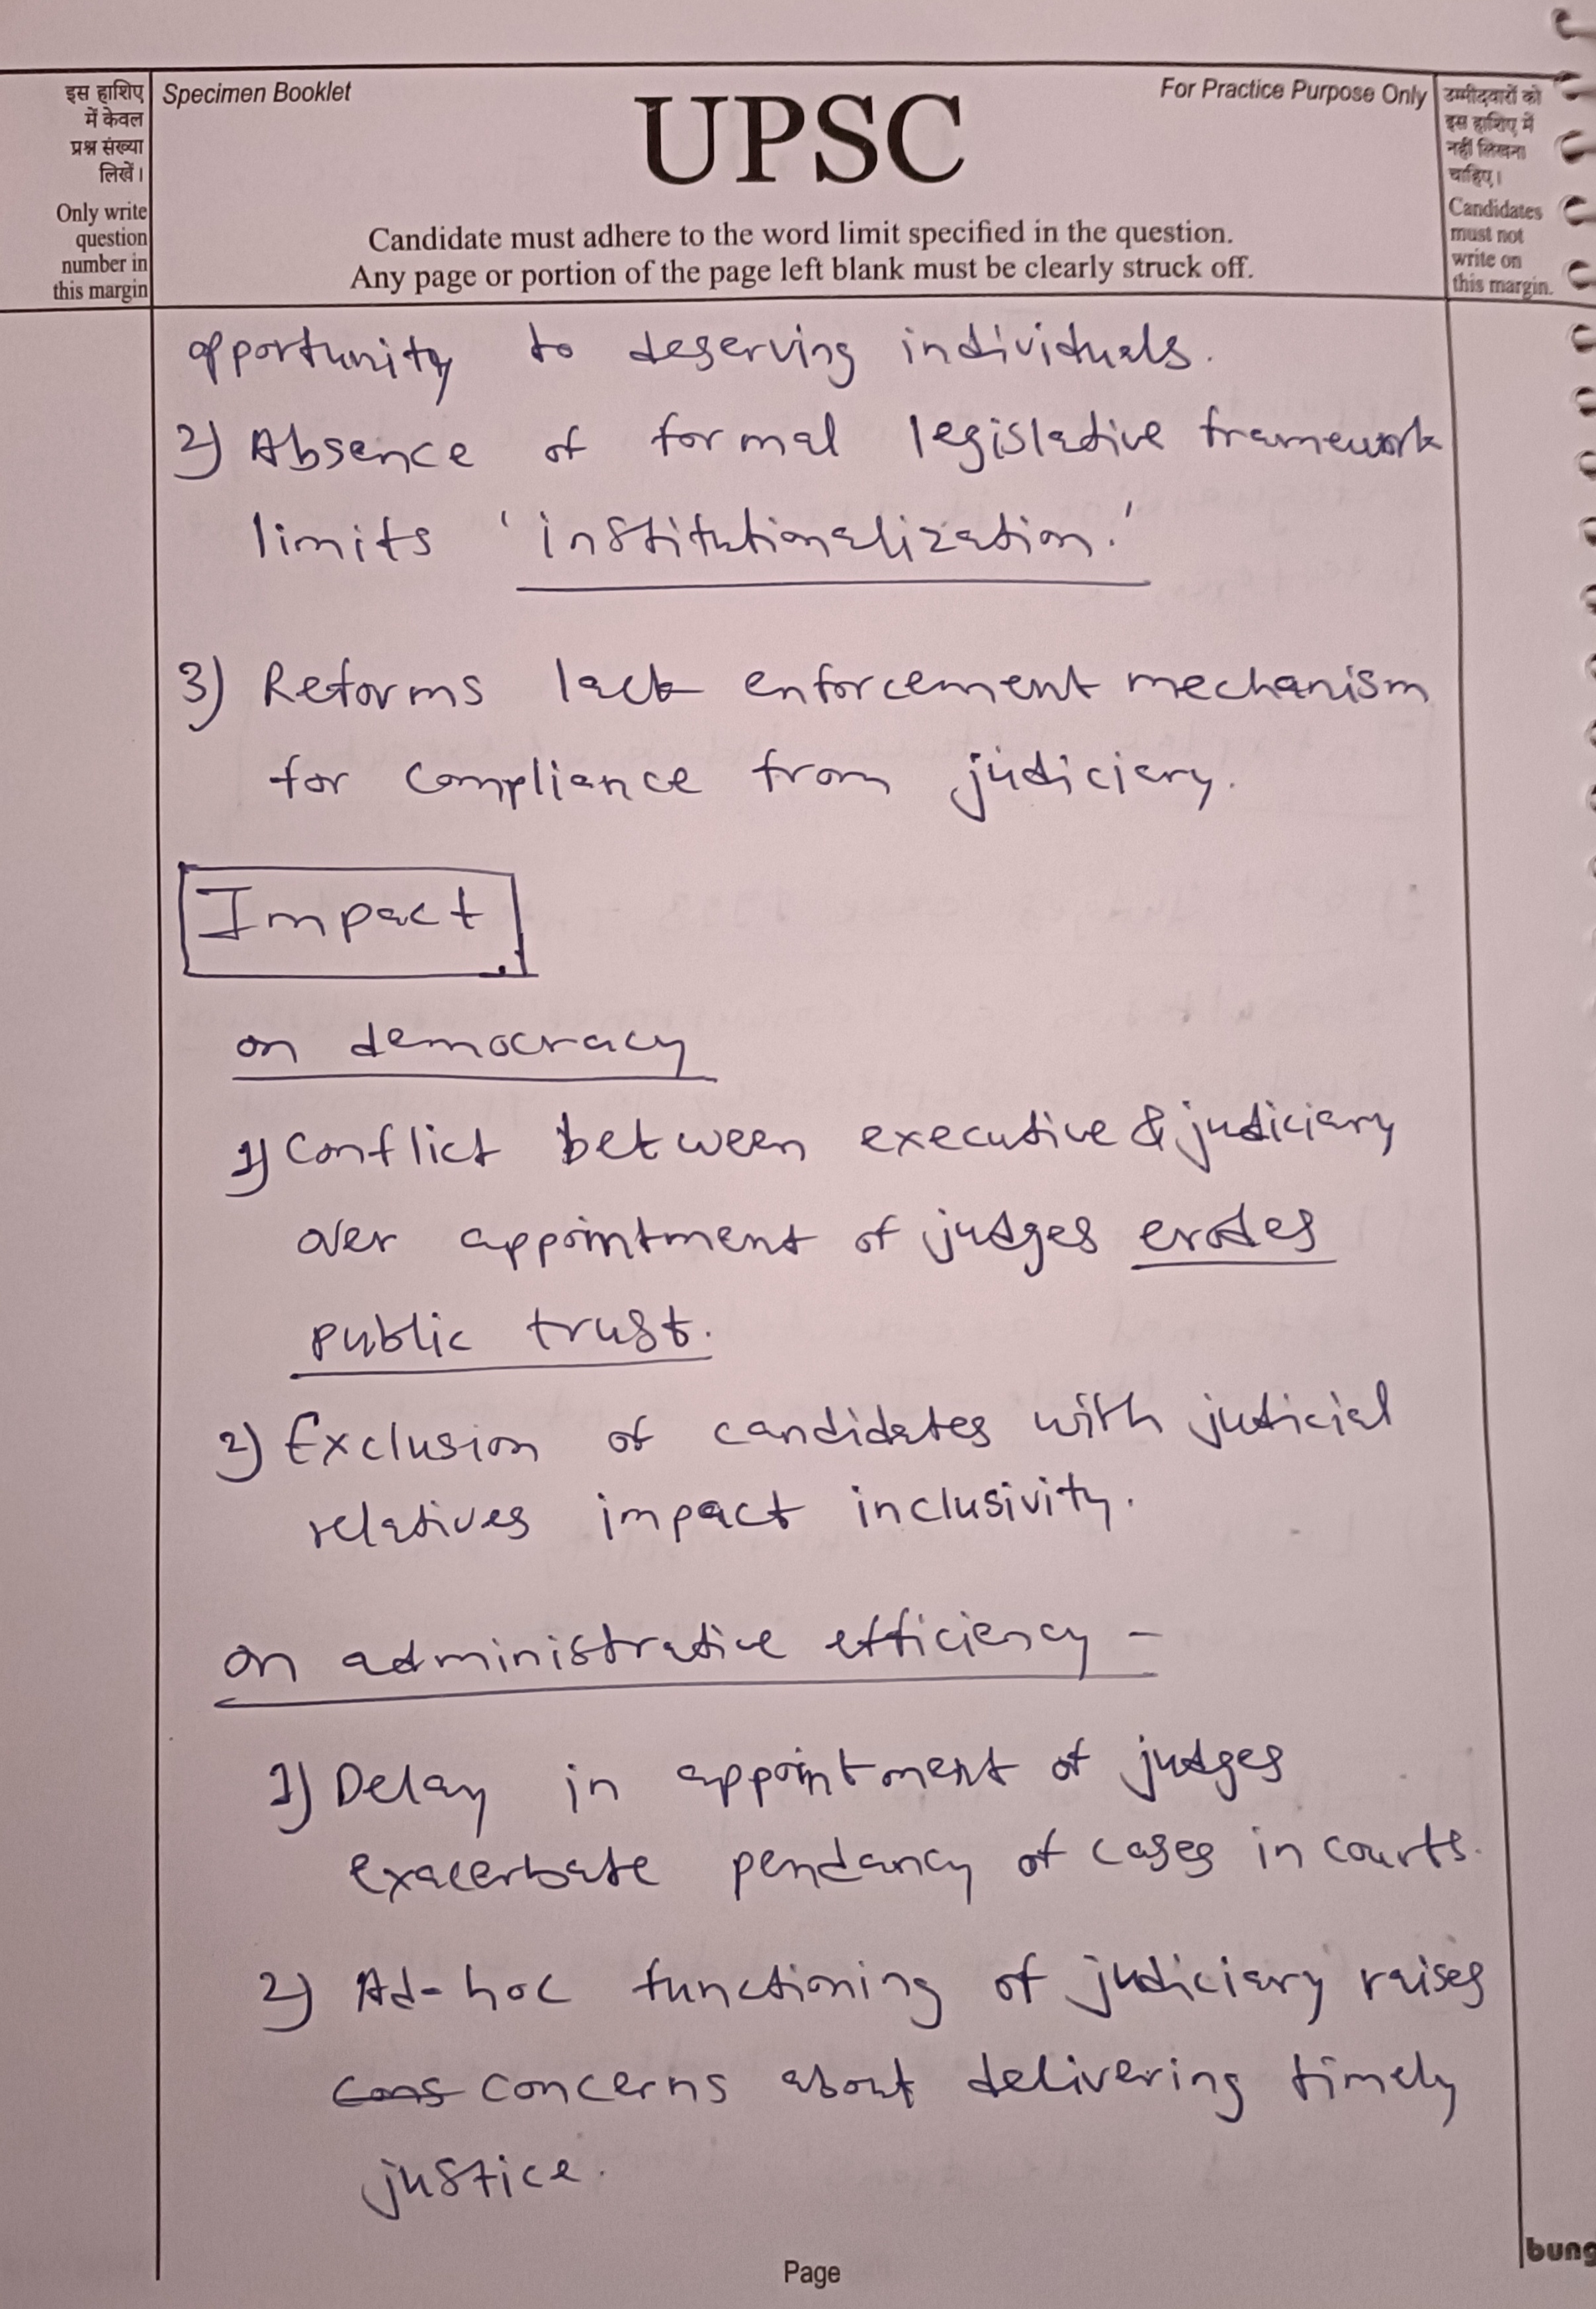 इस हाशिए
में केवल
प्रश्न संख्या
लिखें।
Only write
question
number in
this margin
Specimen Booklet
UPSC
For Practice Purpose Only
Candidate must adhere to the word limit specified in the question.
Any page or portion of the page left blank must be clearly struck off.
उम्मीदवारों को
इस हाशिए में
नहीं लिखना
चाहिए।
Candidates
must not
write on
this margin.
opportunity to deserving individuals.
2) Absence of formal legislative framework
limits 'institutionalization.'
3) Reforms lack enforcement mechanism
for compliance from judiciary.
Impact
on democracy
1) Conflict between executive & judiciary
over appointment of judges erodes
public trust.
2) Exclusion of candidates with judicial
relatives impact inclusivity.
on administrative efficiency -
1) Delay in appointment of judges
exacerbate pendancy of cases in courts.
2) Ad-hoc functioning of judiciary raises
concerns about delivering timely
justice.
Page
bung